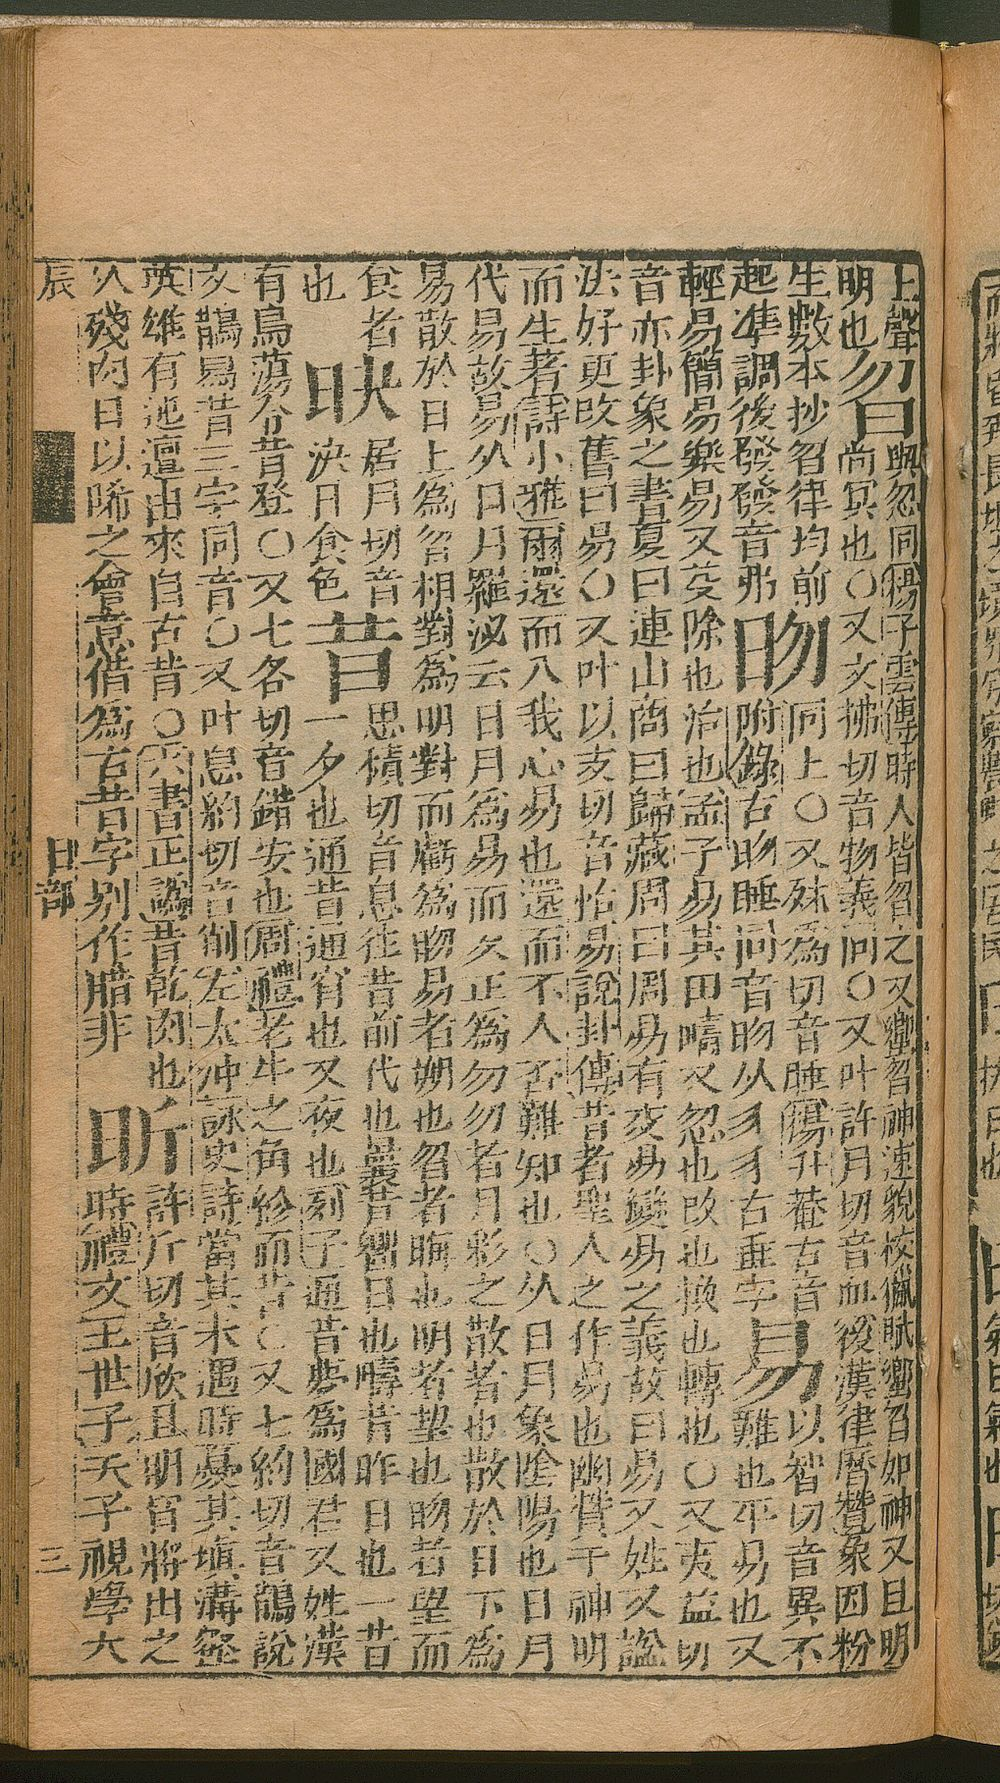 上聲曶昒忽同揚子雲傳時人皆曶之又響曶神速貌校獵賦蠁曶如神又且明
明也尚冥也○又文拂切音物義同○又叶許月切音血後漢律曆贊象因粉
生數本抄曶律均前昒同上○又殊為切音睡楊升菴古音
起準調後發發音弗附錄古昒睡同音昒从⺹⺹古垂字易以智切音異不
輕易簡易樂易又芟除也治也孟子易其田疇又忽也改也換也轉也○又夷益切
音亦卦象之書夏曰連山商曰歸藏周曰周易有交易變易之義故曰易又姓又訟
法好更改舊曰易○又叶以支切音怡易說卦傳昔者聖人之作易也幽贊于神明
而生蓍詩小雅爾還而入我心易也還而不入否難知也○从日月象陰陽也日月
代易故易从日月羅泌云日月為易而夊正為勿勿者月彩之散者也散於日下為
易散於日上為曶相對為明對而虧為昒易者朔也曶者晦也明者望也昒者望而
食者也昳居月切音決日食色昔思積切音息往昔前代也曩昔嚮日也疇昔昨日也一昔
一夕也通昔通宵也又夜也列子通昔夢為國君又姓漢
有烏蕩令昔登○又七各切音錯安也周禮老牛之角紾而昔○又七約切音鵲說
文鵲舄昔三字同音○又叶息約切音削左太冲詠史詩當其未遇時憂其塡溝壑
英雄有迍邅由來自古昔○六書正譌昔乾肉也
从殘肉日以晞之會意借為古昔字別作腊非昕許斤切音欣且明百將出之
時禮文王世子天子視學大
辰
日部
三